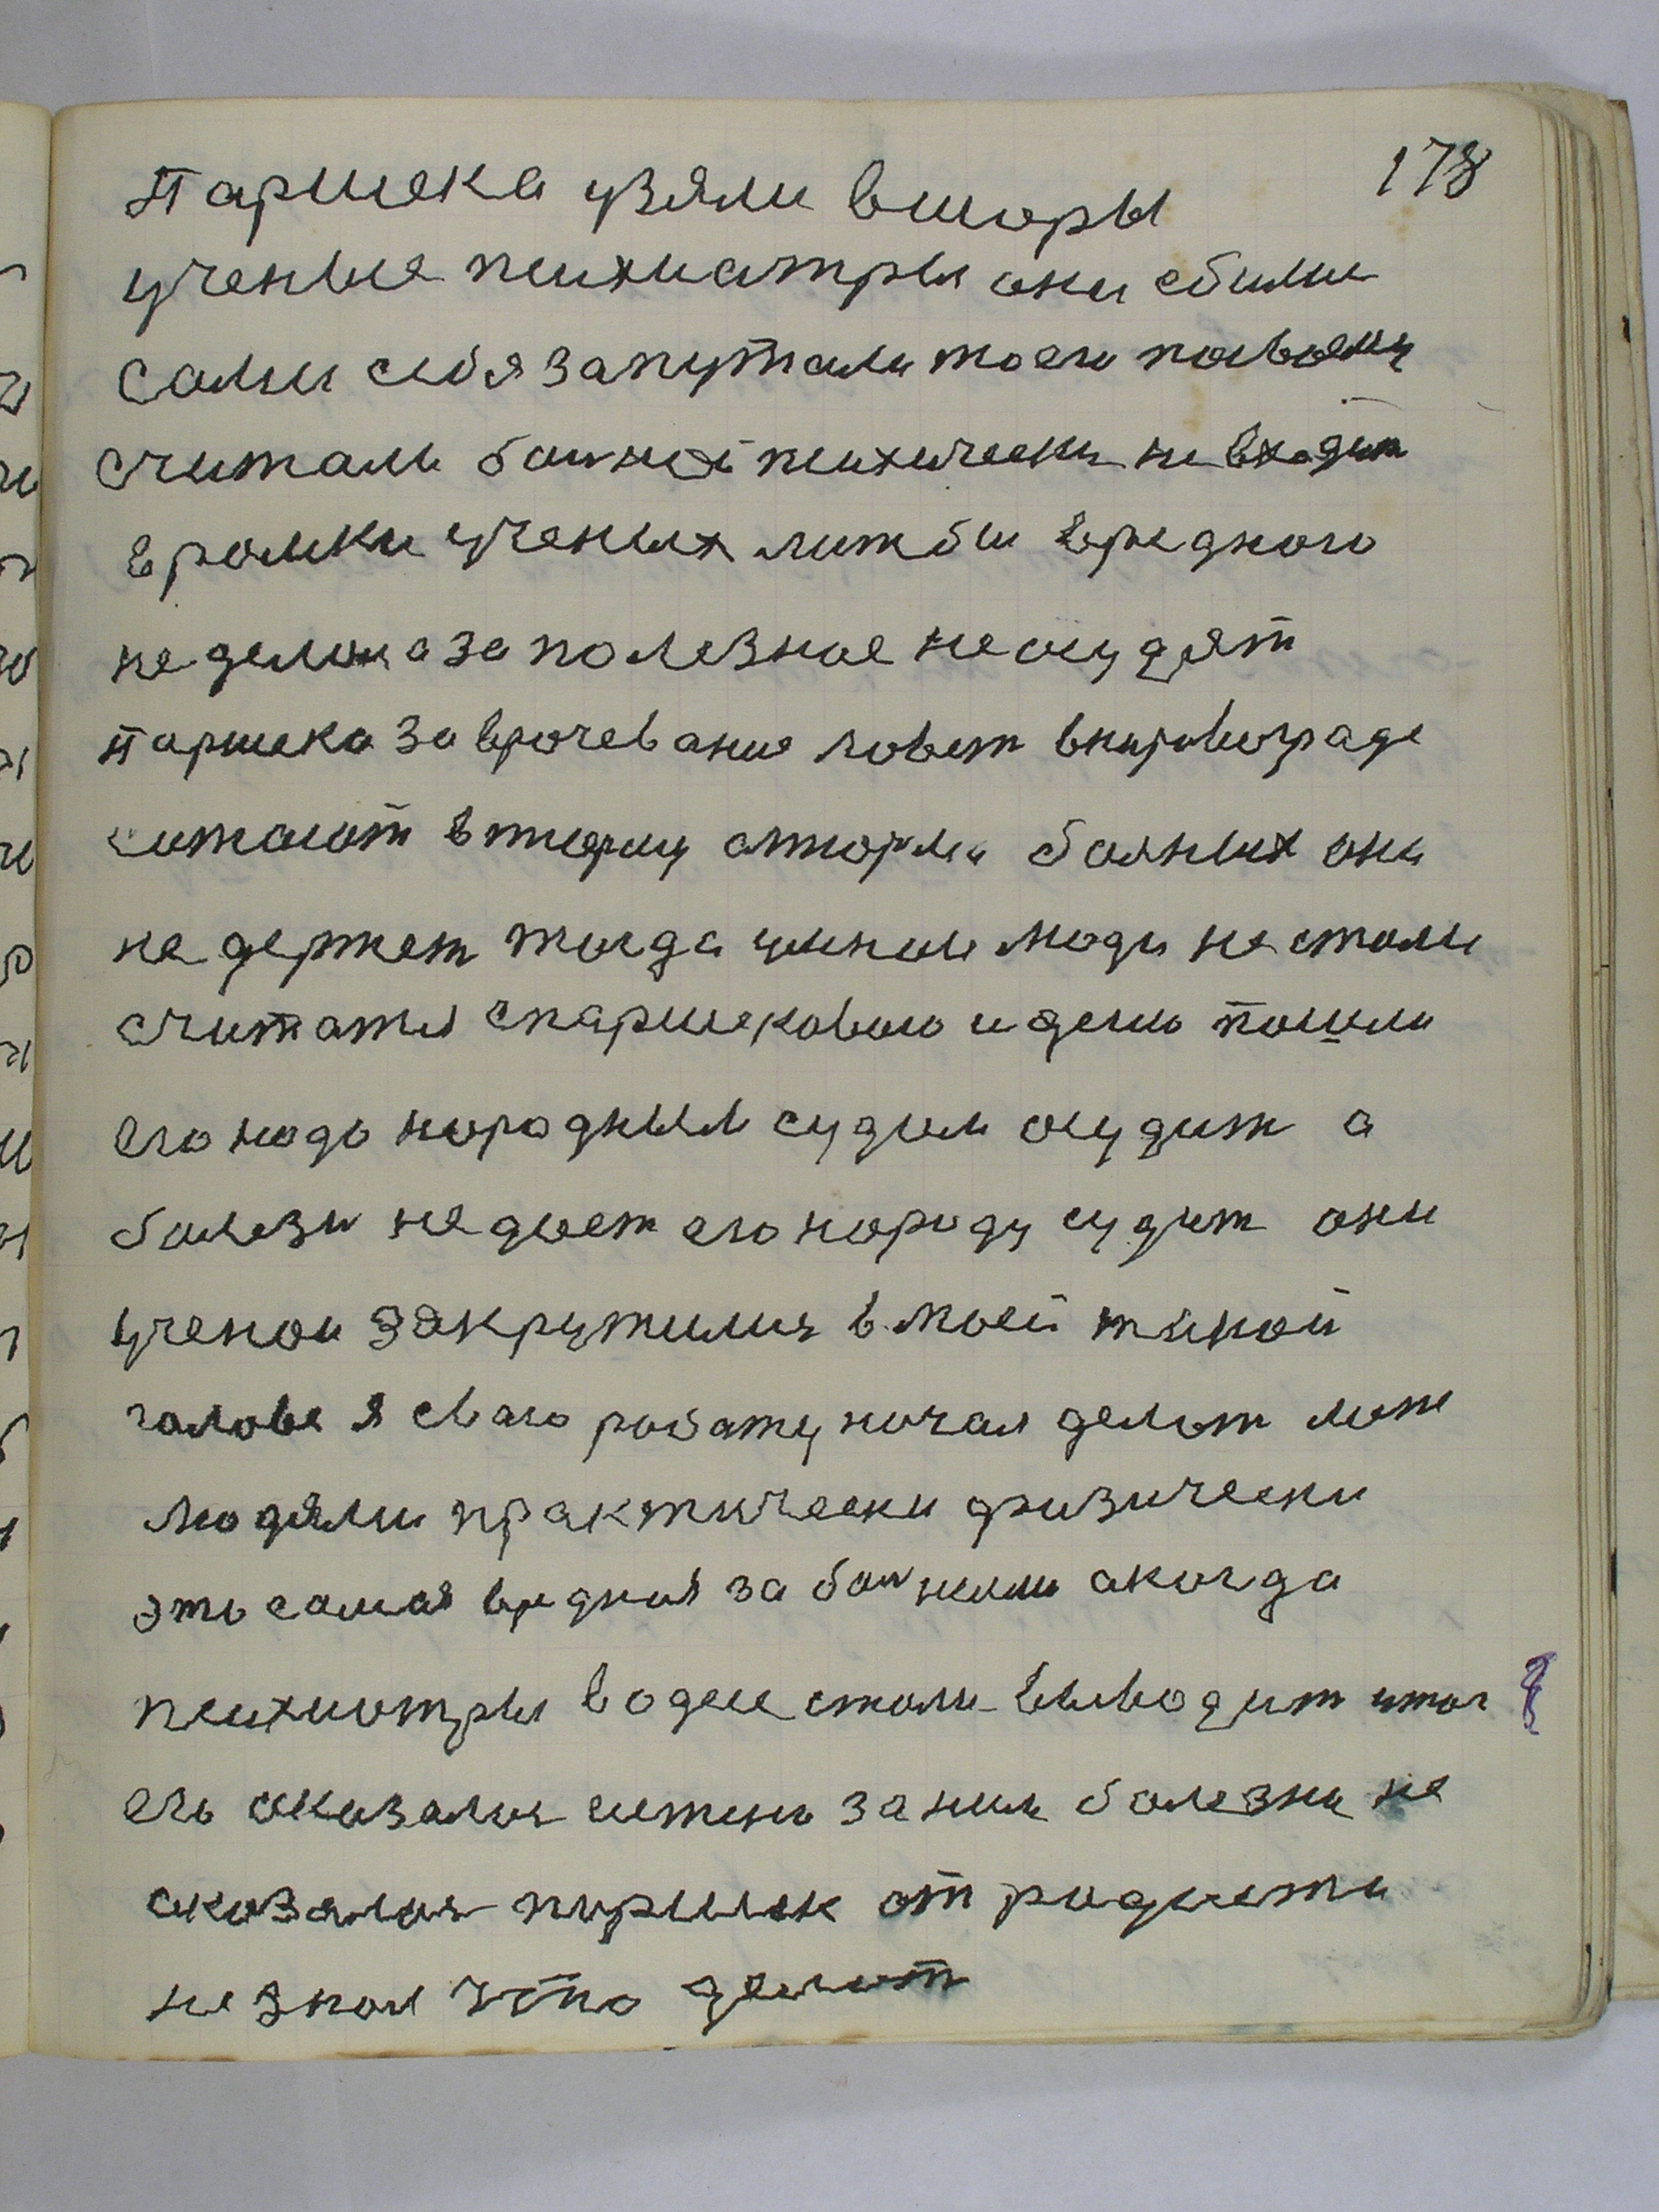 178
Паршека узяли вшоры
ученые психиатры они сбили
сами себя запутали моего повоему
считали болной психически невходит
врамки ученых лижбы вредного
неделал азаполезное неосудят
паршека заврочевание ловят внкировограде
ситают втюрму атюрми болных они
недержет тогда умнои люди нестали
считатся спаршековою идеию пошли
его надо народным судом осудит а
болезн недает его народу судит они
ученои закрутилис вмоей такой
голове я сваю работу начал делат меж
людями практически физически
это самая вредная за болными акогда
психиотры водесе стали выводит итог
его оказалос истено заним болезни не
оказалос паршек от радости
незнал что делат